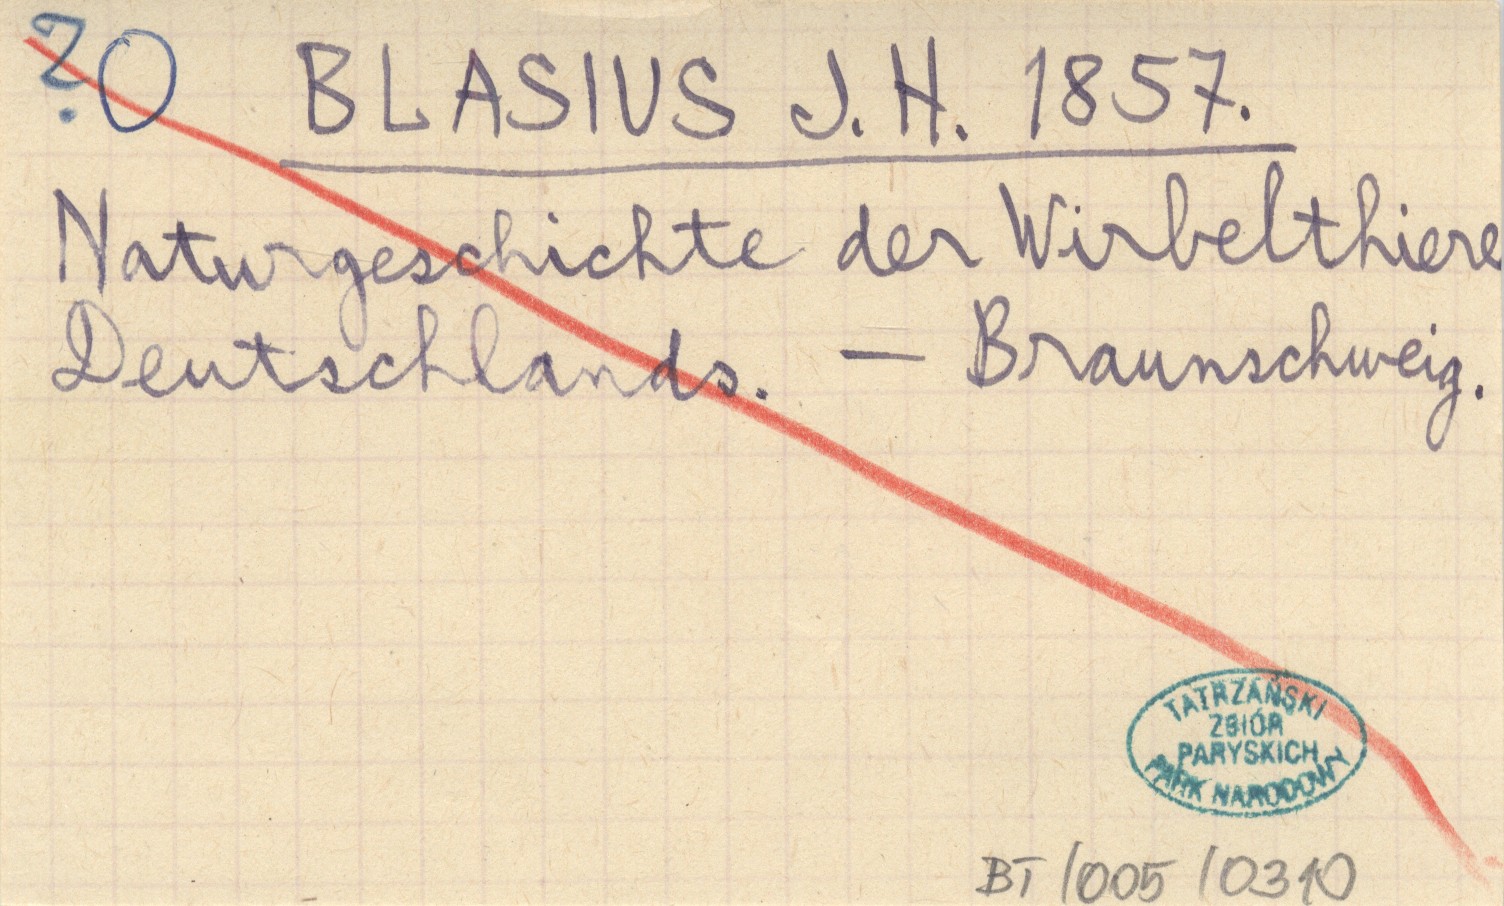 ?O BLASIUS J. H. 1857.
Naturgeschichte der Wirbelthiere
Deutschlands. — Braunschweig.
TATRZAŃSKI
ZBIÓR
PARYSKICH
PARK NARODOWY
BT/005/0310